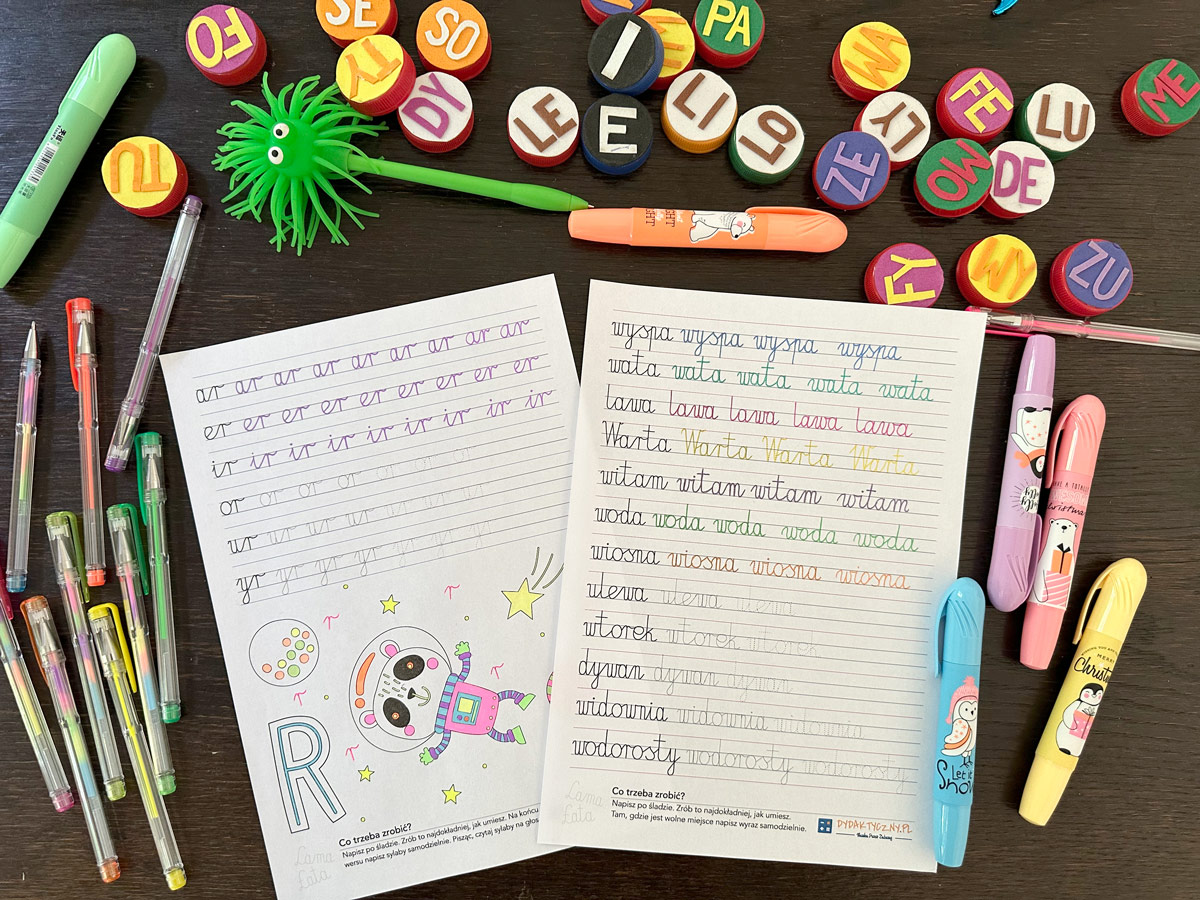 FO
SE
SO
TY
DY
I
PA
LE
E
LI
LO
WA
LY
FE
LU
ME
ZE
DE
FY
WY
ZU
ar ar ar ar ar ar ar ar ar
er er er er er er er er er
ir ir ir ir ir ir ir ir ir
or or or or or or or
ur ur ur ur ur ur ur
yr yr yr yr yr yr yr
R
Co trzeba zrobić?
Napisz po śladzie. Zrób to najdokładniej, jak umiesz. Na końcu
wersu napisz sylaby samodzielnie. Pisząc, czytaj sylaby na głos
Lama
Łata
wyspa wyspa wyspa wyspa
wata wata wata wata wata
lawa lawa lawa lawa lawa
Warta Warta Warta Warta
witam witam witam witam
woda woda woda woda woda
wiosna wiosna wiosna wiosna
ulewa ulewa ulewa
wtorek wtorek wtorek
dywan dywan dywan
widownia widownia widownia
wodorosty wodorosty wodorosty
Lama
Łata
Co trzeba zrobić?
Napisz po śladzie. Zrób to najdokładniej, jak umiesz.
Tam, gdzie jest wolne miejsce napisz wyraz samodzielnie.
DYDAKTYCZNY.PL
Let it
Snow
Christmas
MERRY
Christ